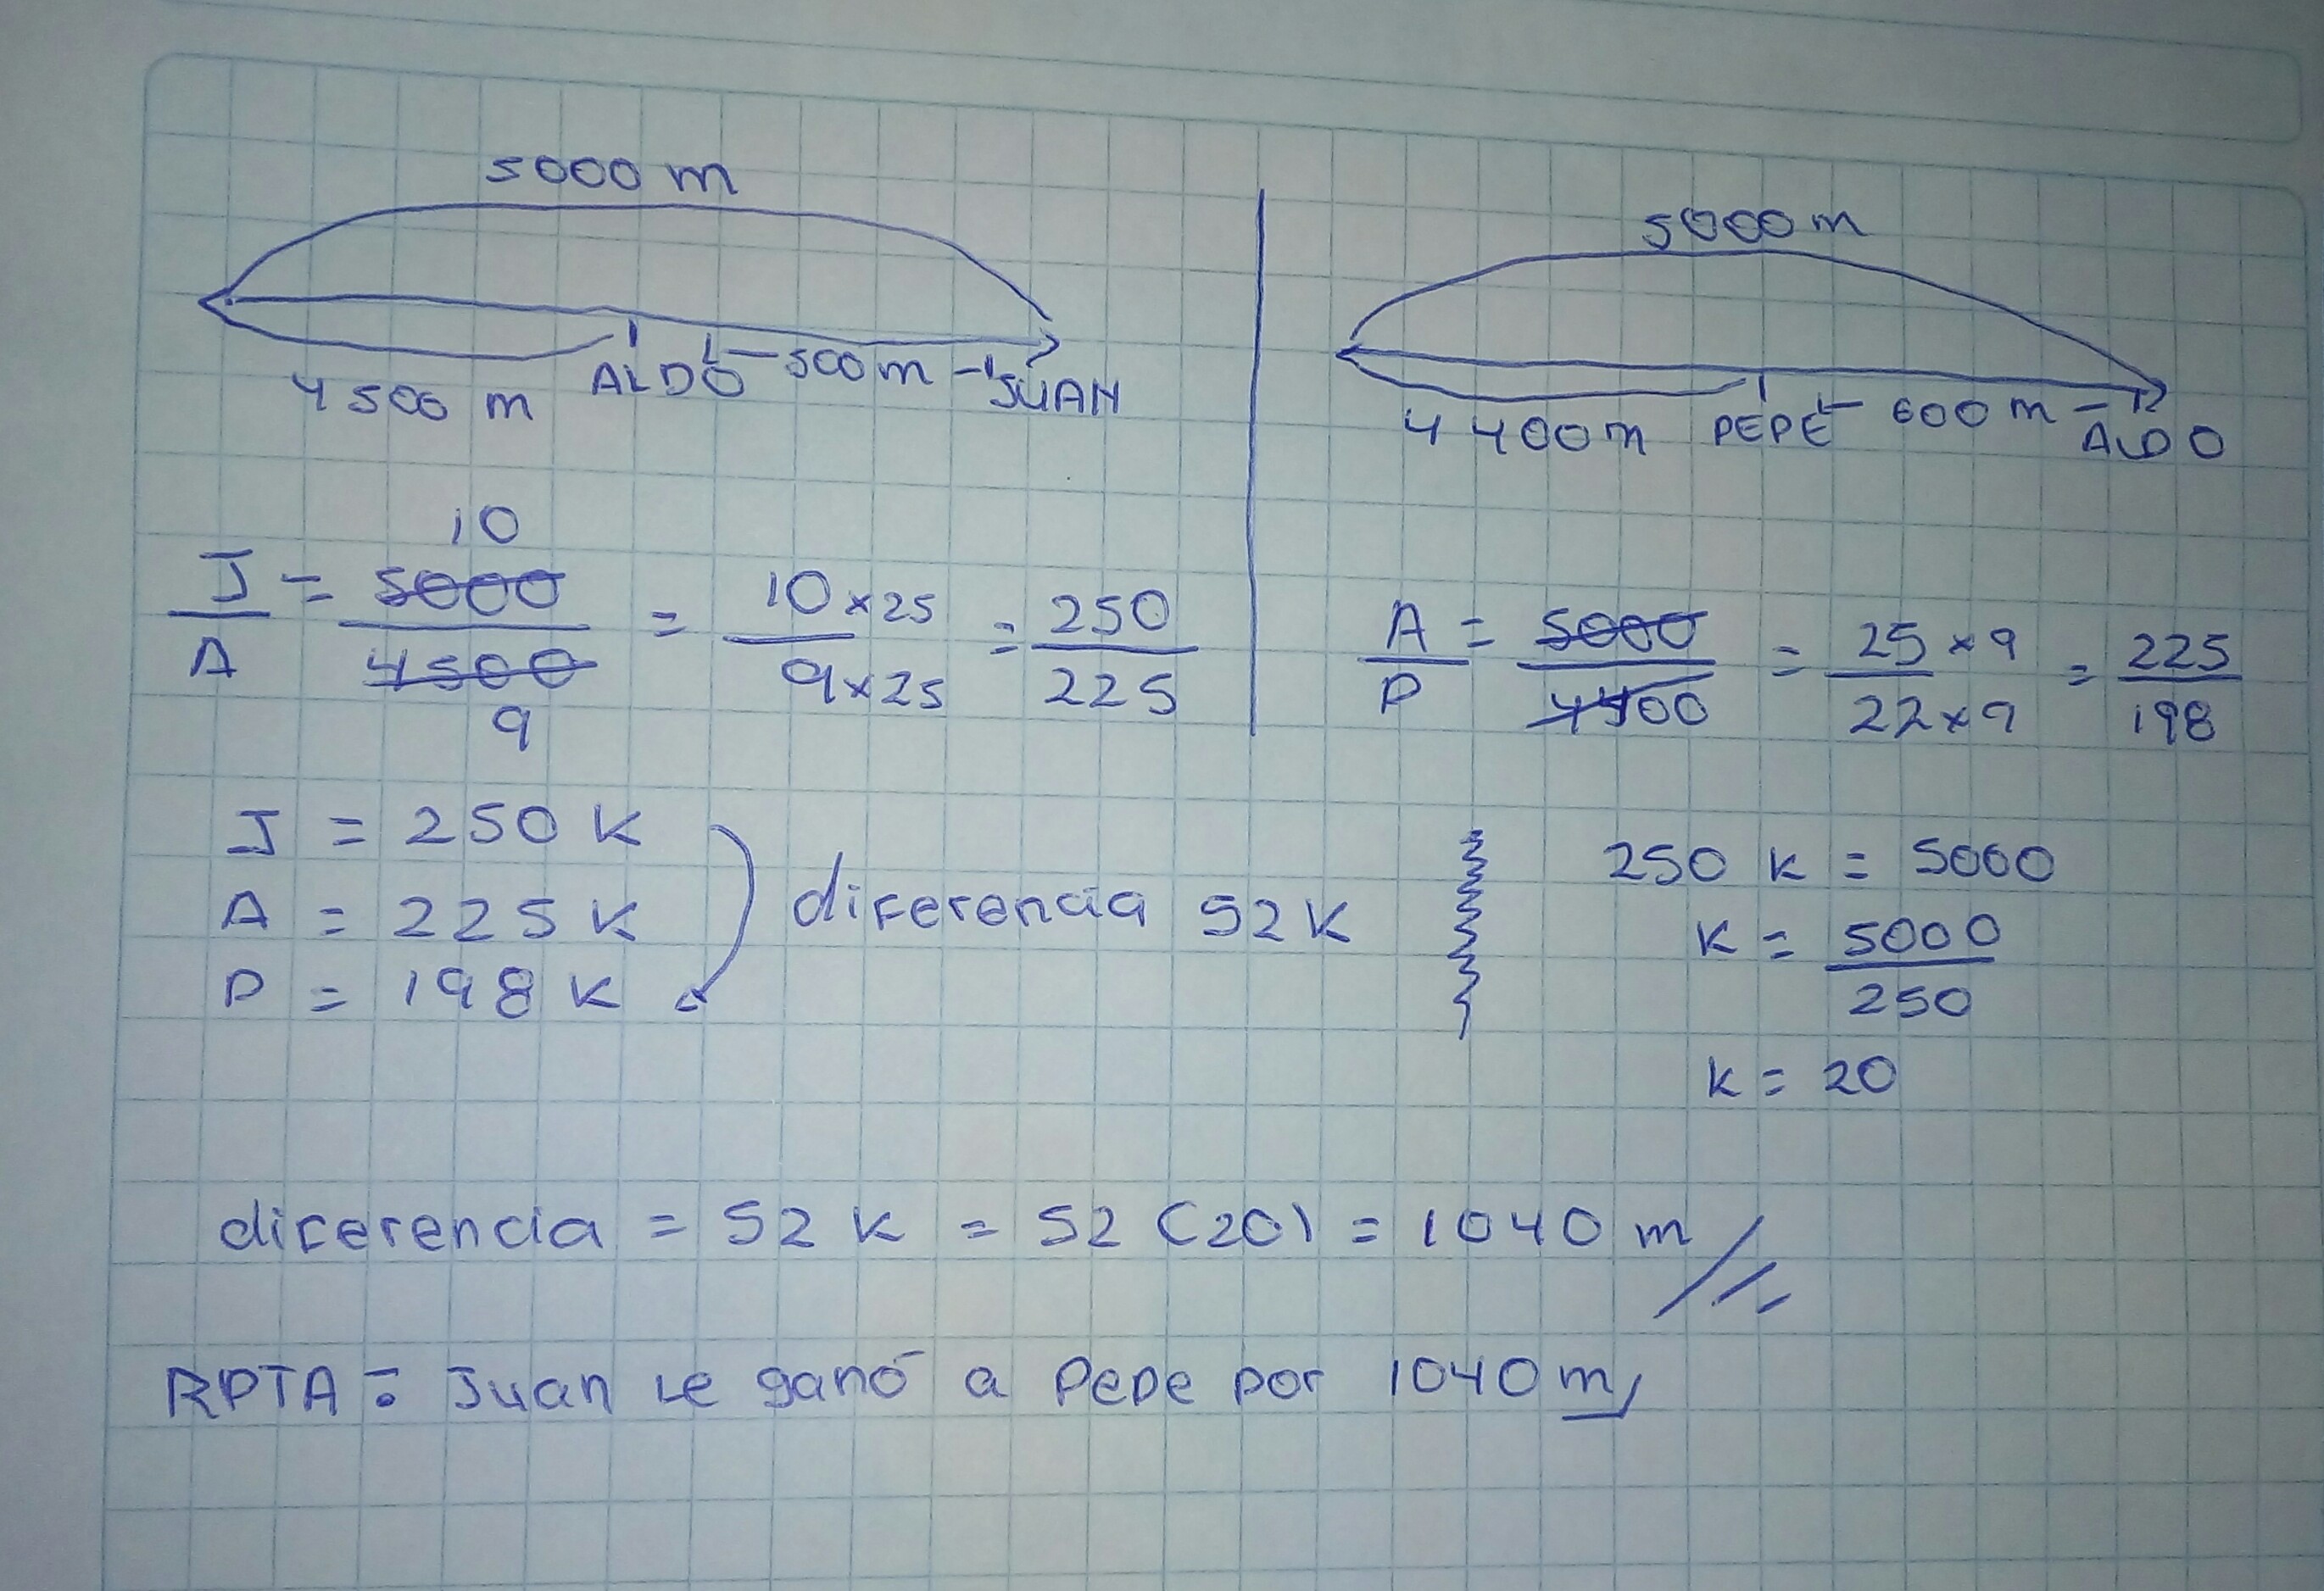 5000 m
4500 m ALDO 500 m JUAN
5000 m
4400 m PEPE 600 m ALDO
J/A = 5000/4500 = 10×25/9×25 = 250/225
10
9
A/P = 5000/4400 = 25×9/22×9 = 225/198
J = 250 K
A = 225 K
P = 198 K
diferencia 52 K
250 K = 5000
K = 5000/250
K = 20
diferencia = 52 K = 52 (20) = 1040 m
RPTA: Juan le ganó a Pepe por 1040 m